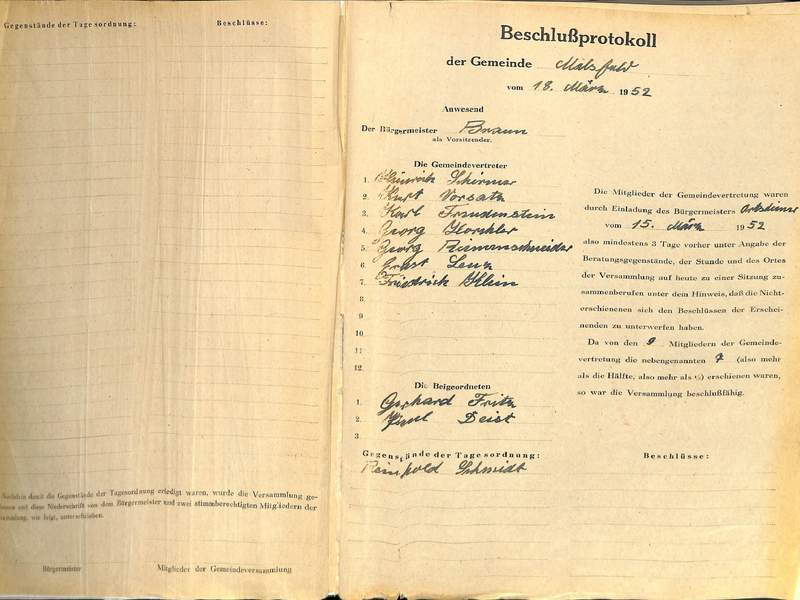 Gegenstände der Tagesordnung: Beschlüsse:
Nachdem damit die Gegenstände der Tagesordnung erledigt waren, wurde die Versammlung ge-
und diese Niederschrift von dem Bürgermeister und zwei stimmberechtigten Mitgliedern der
wie folgt, unterschrieben.
Bürgermeister Mitglieder der Gemeindeversammlung
Beschlußprotokoll
der Gemeinde Malsfeld
vom 18. März 1952
Anwesend
Der Bürgermeister Braun
als Vorsitzender.
Die Gemeindevertreter
1. Heinrich Schirmer
2. Kurt Vorsatz
3. Karl Freudenstein
4. Georg
5. Georg Riemenschneider
6. Ernst Lenz
7. Friedrich Klein
8.
9
10.
11
12.
Die Beigeordneten
1. Gerhard Fritz
2. Deist
3.
Gegenstände der Tagesordnung:
Reinhold Schmidt
Die Mitglieder der Gemeindevertretung waren
durch Einladung des Bürgermeisters Ortsdiener
vom 15. März 1952
also mindestens 3 Tage vorher unter Angabe der
Beratungsgegenstände, der Stunde und des Ortes
der Versammlung auf heute zu einer Sitzung zu-
sammenberufen unter dem Hinweis, daß die Nicht-
erschienenen sich den Beschlüssen der Erschei-
nenden zu unterwerfen haben.
Da von den 9 Mitgliedern der Gemeinde-
vertretung die nebengenannten 7 (also mehr
als die Hälfte, also mehr als ⅓) erschienen waren,
so war die Versammlung beschlußfähig.
Beschlüsse: